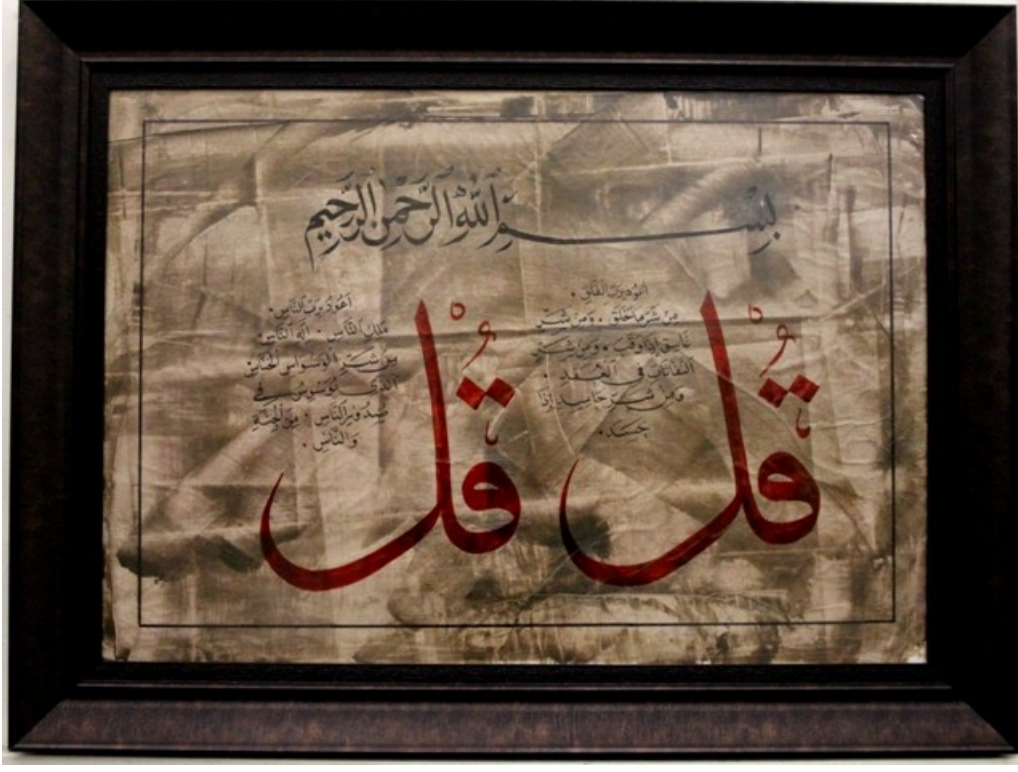 بِسْمِ ٱللَّهِ ٱلرَّحْمَٰنِ ٱلرَّحِيمِ
قُلْ
أعوذ برب الفلق .
من شر ما خلق . ومن شر
غاسق إذا وقب . ومن شر
النفاثات في العقد .
ومن شر حاسد إذا
حسد .
قُلْ
أعوذ برب الناس .
ملك الناس . إله الناس .
من شر الوسواس الخناس
الذي يوسوس في
صدور الناس . من الجنة
والناس .